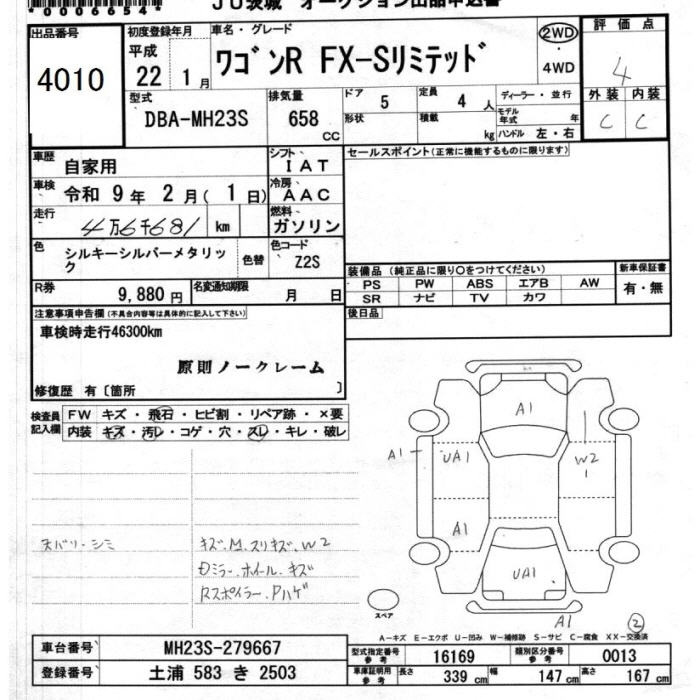 *0006654*
JU茨城 オークション出品申込書
出品番号
4010
初度登録年月
平成
22 1月
車名・グレード
ワゴンR FX-Sリミテッド
2WD
・
4WD
評価点
4
外装 内装
C C
型式
DBA-MH23S
排気量
658 CC
ドア 5
形状
定員 4人
積載 kg
ディーラー・並行
モデル年式 年
ハンドル 左・右
車歴 自家用
シフト IAT
セールスポイント(正常に機能するものに限ります)
車検 令和 9年 2月(1日)
冷房 AAC
走行 4万6千681 km
燃料 ガソリン
色 シルキーシルバーメタリック
色替
色コード Z2S
装備品(純正品に限り○をつけてください)
新車保証書
PS PW ABS エアB AW 有・無
SR ナビ TV カワ
R券 9,880円
名変通知期限 月 日
後日品
注意事項申告欄(不具合内容等は具体的に記入して下さい)
車検時走行46300km
原則ノークレーム
修復歴 有〔箇所 〕
検査員記入欄
FW キズ・飛石・ヒビ割・リペア跡・×要
内装 キズ・汚レ・コゲ・穴・スレ・キレ・破レ
A1
A1 UA1 W2
1
A1
UA1
A1
天バリ・シミ
キズ.M.スリキズ.W2
Dミラー.ホイール.キズ
Rスポイラー.Pハゲ
スペア
②
A-キズ E-エクボ U-凹み W-補修跡 S-サビ C-腐食 XX-交換済
車台番号 MH23S-279667
登録番号 土浦 583 き 2503
型式指定番号参考 16169
類別区分番号参考 0013
車庫証明用参考 長さ 339cm 幅 147cm 高さ 167cm